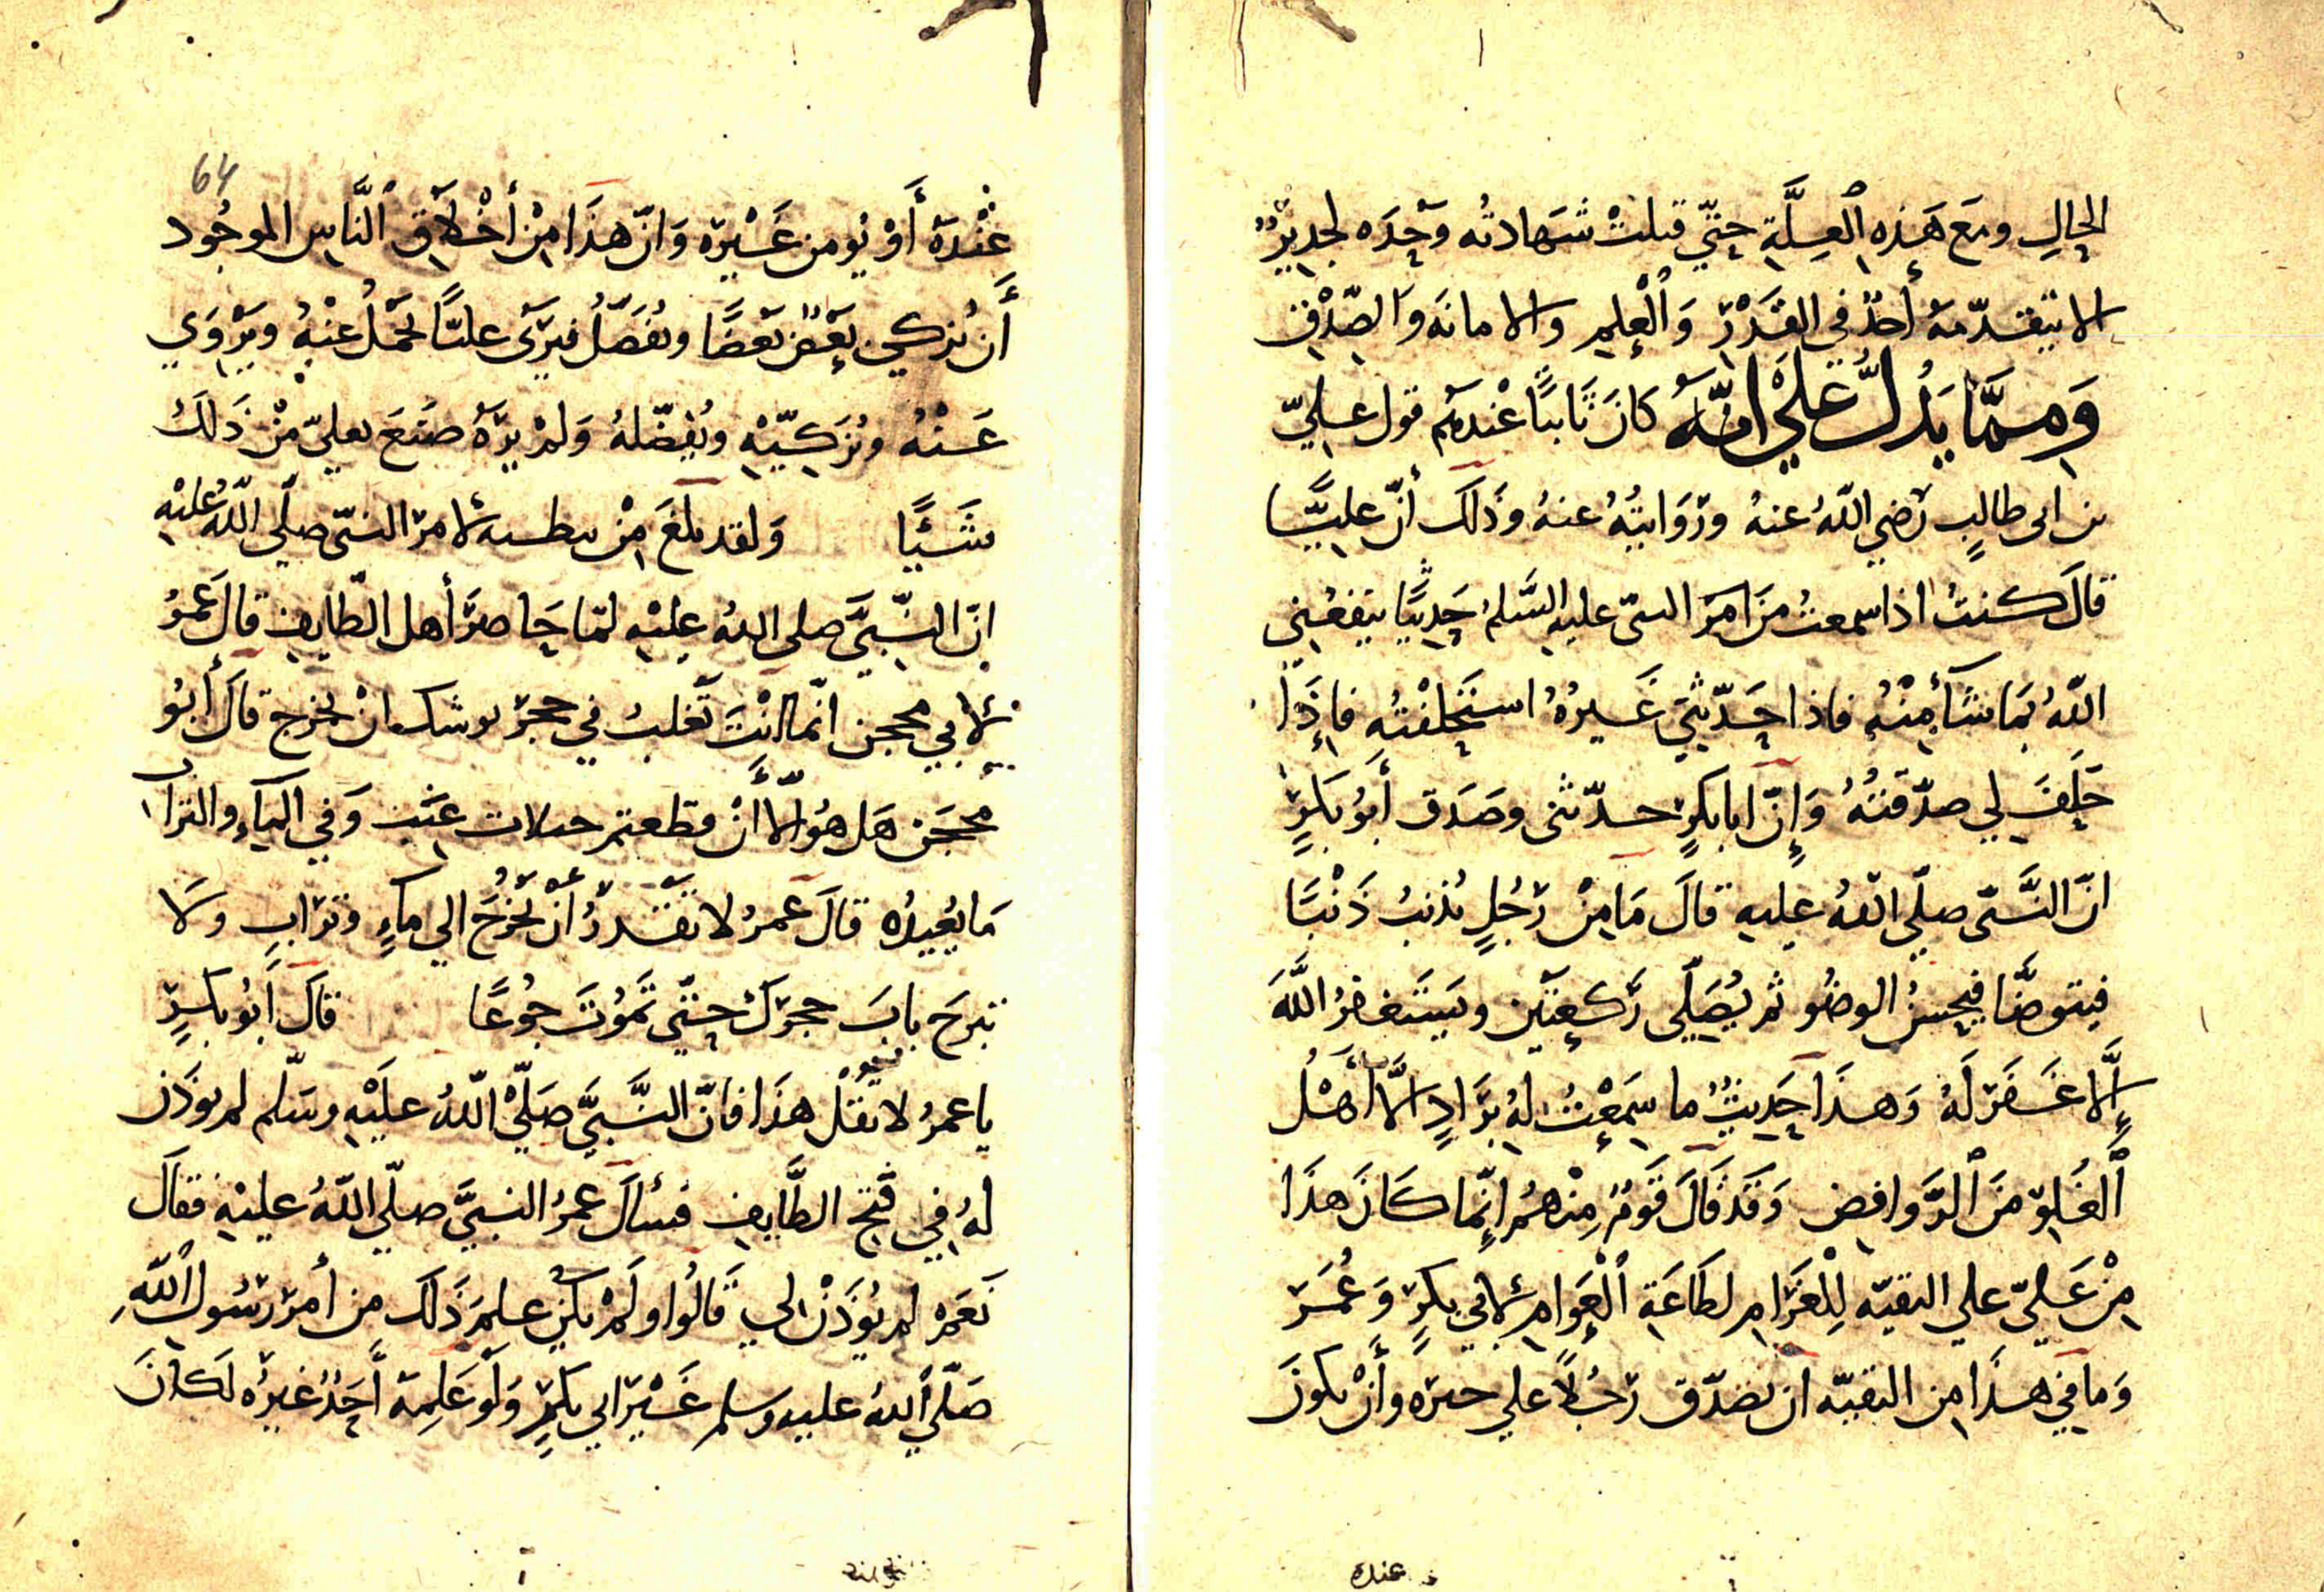 الحالِ ومَع هَذِه ٱلعِلَّةِ حتّي قبلتْ شهادتُه وَحْدَه لجديرٌ
الا يتقدّمهُ أحدٌ في القَدْرِ وَٱلْعِلمِ والامانَه وَالصّدْقِ
وَمِمَّا يَدُلُّ عَلَي انّهُ كانَ ثَابتًا عنْدهُم قول عليّ
بن ابى طالبٍ رَضي اللّهُ عنهُ ورَوَايتُهُ عنهُ وذَلكَ أنّ عليًّا
قالَ كنتُ اذا سمعتُ مِنَ النبىّ عليه السَّلم حَديثًا ينفعُني
اللّهُ بمَا شَآء مِنْهُ فاذا حَدّثنِي غَيرُهُ استحلفْتُه فاذَا
حَلَفَ لي صدّقتُهُ وَإنّ ابا بكرٍ حدّثنى وصَدَق أبُو بكرٍ
انّ النَّبىّ صلّي اللّهُ عليه قالَ مَا مِنْ رَجُلٍ يُذنبُ ذَنْبًا
فيتوضَّا فيُحسنُ الوضُو ثم يُصَلّي رَكعتَين ويَستَغفرُ اللَّهَ
إلَّا غَفَرَ لَهُ وَهذَا حَديثٌ ما سَمِعْتُ لهُ برَادٍ الَّا أهْلُ
ٱلغُلوّ مِنَ ٱلرَّوافض وَقَدْ قَالَ قَومٌ مِنْهُم انّما كَانَ هذَا
مِنْ عَليّ علي التقيّه لِلْغَرَامِ لطَاعَةِ ٱلْعَوامِ لأبي بكرٍ وَعُمَرَ
وَمَا فِي هذَا مِن التقيّه ان يصَدّق رَجُلًا علي خبره وأنْ يكونَ
عنده
64
عنْدَهُ أوْ يُومن غَيْرَه وَانّ هذَا مِنْ أخْلَاقِ ٱلنَّاسِ الموجُود
أن يُزكي بَعْضٌ بعْضًا ويُفَصّلُ فيَرَي عليًّا تحمّلُ عنْهُ ويَرْوَي
عَنْهُ ويُزَكيّهِ ويُفضّلهُ وَلمْ يرَهُ صَنَعَ بعليّ مِنْ ذَلكَ
شَيْئًا وَلقد بلغَ مِنْ لأمر النبىّ صلّي اللّهُ عليْهِ
انّ النَّبيَّ صلي اللهُ عليْهِ لمّا حَاصرَ أهل الطّايف قالَ عُمَرُ
لأبي محجن انّما انْتَ ثَعْلبٌ في حجر يوشك انْ يخرج قالَ أبُو
محجَن هَل هُوَ الّا أنْ قطعتم حبلات عنَبٍ وَفي المَآءِ والتراب
مَا يُعيدُه قالَ عمرُ لا تقدرُ أنْ تُخْرِجَ الي مَاءٍ وترابٍ ولَا
تبرحَ بابَ حجرك حتّي تَمُوتَ جُوعًا قالَ أبُو بكرٍ
يا عمرُ لا تقلْ هذَا فانّ النَّبيَّ صَلّي اللّهُ عليْهِ وسَلّم لم يُوذَن
لهُ فِي فَتحِ الطَّايفِ فسألَ عمرُ النبيَّ صلّي اللّهُ عليْهِ فقالَ
نَعَم لم يُوذَنْ لي قَالُوا ولَمْ يكُنْ علِمَ ذَلكَ مِن أمر رَسُول ٱللّهِ
صَلّي ٱللهُ عليه وسلم غَيْرَ ابي بكرٍ وَلَو عَلِمهُ أحَدٌ غيرُه لَكانَ